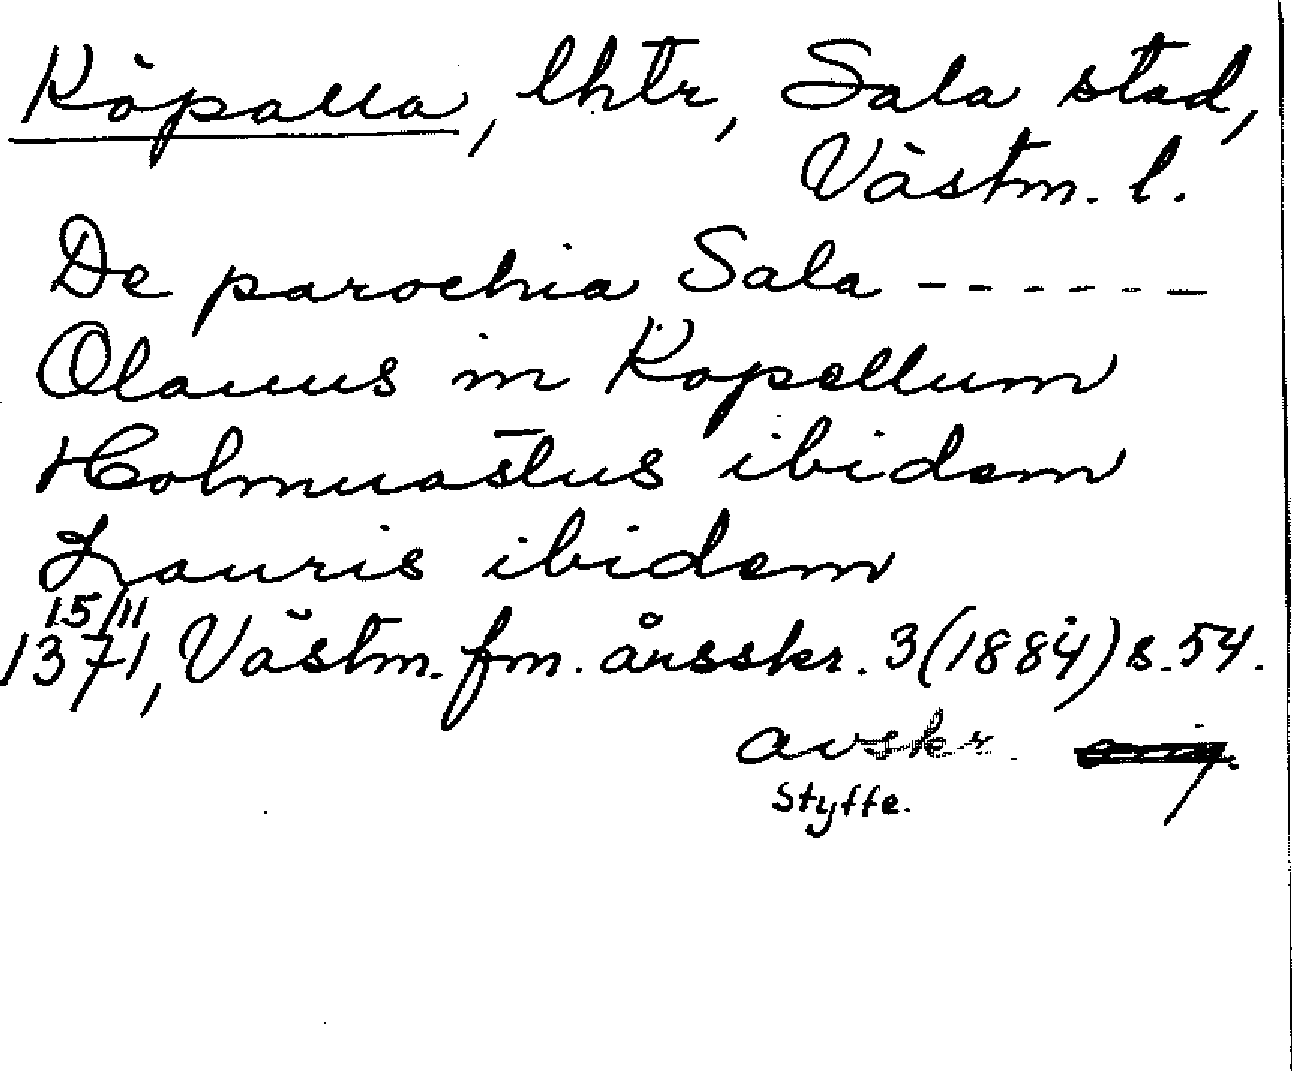 Köpalla, lhtr, Sala stad,
Västm. l.
De parochia Sala - - - - - -
Olauus in Kopellum
Holmuastus ibidem
Lauris ibidem
15/11
1371, Västm. fm. årsskr. 3 (1884) s. 54.
avskr.
Styffe.